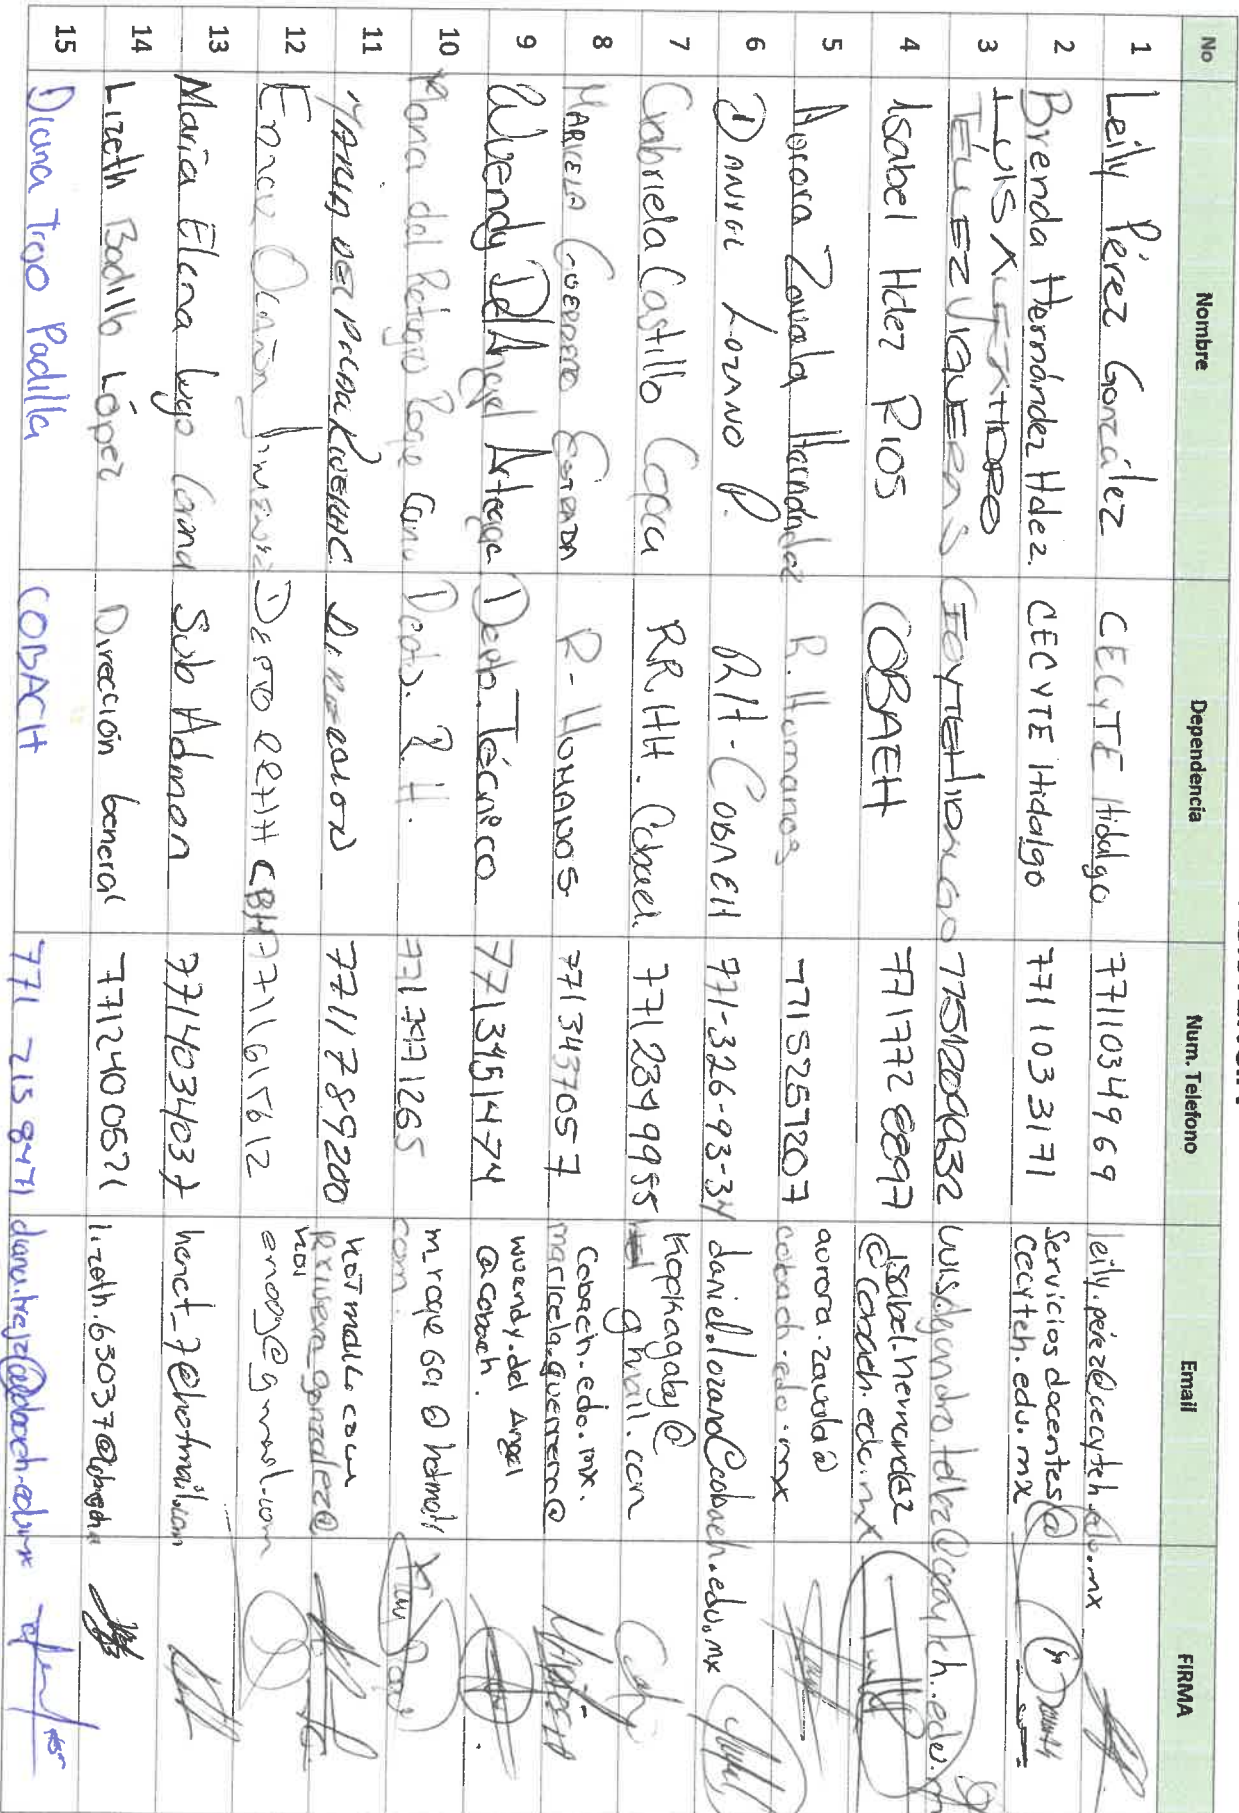 No Nombre Dependencia Num. Telefono Email FIRMA
1 Leily Pérez González CECyTE Hidalgo 7711034969 leily.pérez@cecyteh.edu.mx
2 Brenda Hernández Hdez. CECYTE Hidalgo 771 103 3171 Servicios docentes@
cecyteh.edu.mx
3 LUIS ALEJANDRO
TELLEZ JIQUERAS CECYTEHIDALGO 7751209932
4 Isabel Hdez Rios COBAEH 7717728897 isabel.hernandez
@cobaeh.edu.mx
5 Aurora Zavala Hernández R. Humanos 7715257207 aurora.zavala@
cobaeh.edu.mx
6 DANIEL LOZANO P. RH-COBAEH 771-326-93-34 daniel.lozano@cobaeh.edu.mx
7 Gabriela Castillo Copca RR.HH. Cobaeh 7712349955 Kopkagaby@
gmail.com
8 MARICELA GUERRERO ESTRADA R-HUMANOS 7713437057 Cobaeh.edu.mx.
maricela.guerrero@
9 Wuendy Del Angel Arteaga Depto. Técnico 7713451474 wuendy.del Angel
@cobaeh.
10 Maria del Refugio Roque Cano Depto. R.H. m_roque601@hotmail
com.
11 MARIA DEL Dirección 7711789200 hotmail.com
12 DEPTO RRHH CBH 7711615612
13 María Elena Lugo Sub Admon 7714034037 henct_7@hotmail.com
14 Lizeth Badillo López Dirección General 7712400571
15 Diana Trejo Padilla COBAEH 771 215 8471